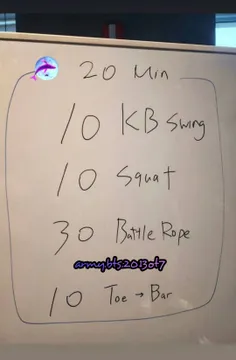 20 Min
10 KB Swing
10 Squat
30 Battle Rope
armybts2013ot7
10 Toe → Bar